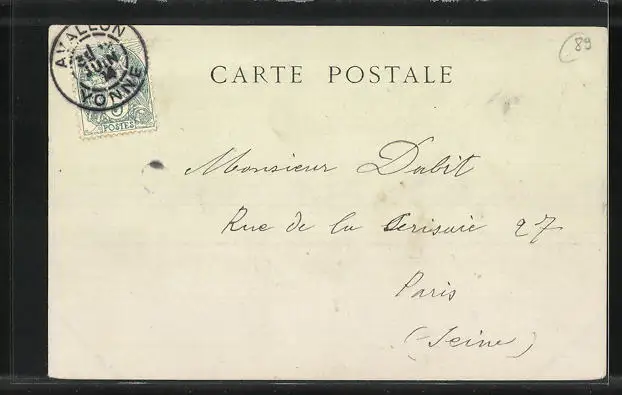 AVALLON
JUIN
YONNE
5
POSTES
89
CARTE POSTALE
Monsieur Dabit
Rue de la Cerisaie 27
Paris
(Seine)